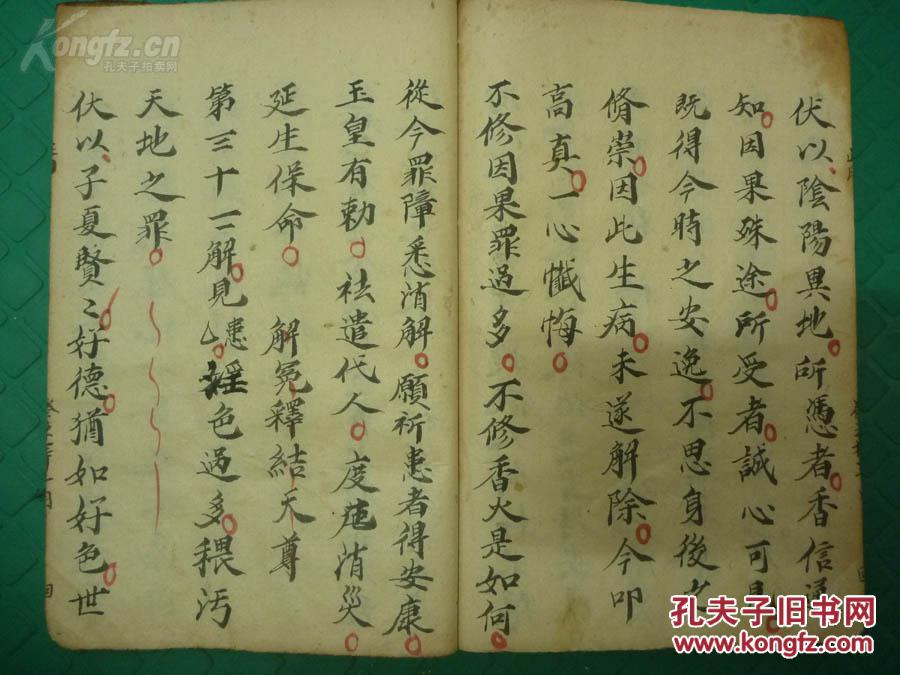 伏以陰陽異地所憑者香信通
知因果殊途所受者誠心可見
既得今時之安逸不思身後之
脩崇因此生病未遂解除今叩
高真一心懺悔
不修因果罪過多不修香火是如何
從今罪障悉消解願祈患者得安康
玉皇有勅祛遣代人度厄消災
延生保命 解冤釋結天尊
第三十二解見患婬色過多穢污
天地之罪
伏以子夏賢〻好德猶如好色世
Kongfz.cn
孔夫子拍卖网
孔夫子旧书网
KONGFZ.COM